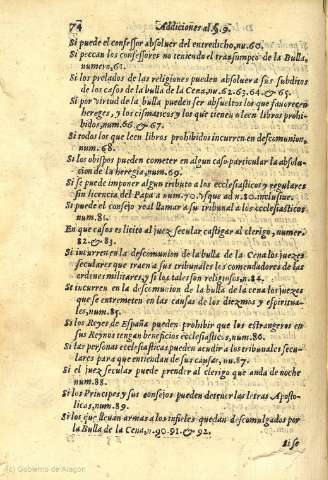 74 Addiciones al §. 9.
Si puede el confessor absoluer del entredicho, nu. 60.
Si peccan los confessores no teniendo el transumpto de la Bulla,
numero, 61.
Si los prelados de las religiones pueden absoluer a sus subditos
de los casos de la bulla de la Cena, nu. 62. 63. 64. & 65.
Si por virtud de la bulla pueden ser absueltos los que fauorecen
hereges, y los cismaticos y los que tienen o leen libros prohi-
bidos, num. 66. & 67.
Si todos los que leen libros prohibidos incurren en descomunion,
num. 68.
Si los obispos pueden cometer en algun caso particular la absolu-
cion de la heregia, num. 69.
Si se puede imponer algun tributo a los ecclesiasticos y regulares
sin licencia del Papa a num. 70. vsque ad n. 80. inclusiue.
Si puede el consejo real llamar a su tribunal a los ecclesiasticos
num. 81.
En que casos es licito al juez secular castigar al clerigo, numero
82. & 83.
Si incurren en la descomunion de la bulla de la Cena los juezes
seculares que traen a sus tribunales los comendadores de las
ordenes militares, y si los tales son religiosos, n. 84.
Se incurren en la descomunion de la bulla de la cena los juezes
que se entremeten en las causas de los diezmos y espiritua-
les, num. 85.
Si los Reyes de España pueden prohibir que los estrangeros en
sus Reynos tengan beneficios ecclesiasticos, num. 86.
Si las personas ecclesiasticas pueden acudir a los tribunales secu-
lares para que entiendan de sus causas, nu. 87.
Si el juez secular puede prender al clerigo que anda de noche
num. 88.
Si los Principes y sus consejos pueden detener las letras Aposto-
licas, num. 89.
Si los que lleuan armas a los infieles quedan descomulgados por
la Bulla de la Cena, n. 90. 91. & 92.
Si se
(c) Gobierno de Aragón